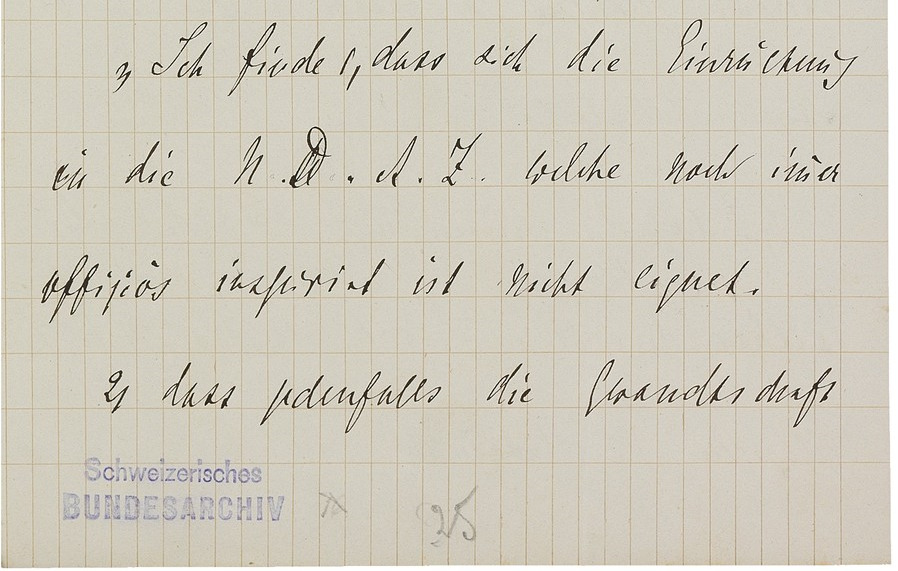 1) Ich finde 1, dass sich die Einrückung
in die N.D.A.Z. welche noch im̄er
offiziös inspiriert ist nicht eignet.
2) dass jedenfalls die Gesandtschaft
Schweizerisches
BUNDESARCHIV
25